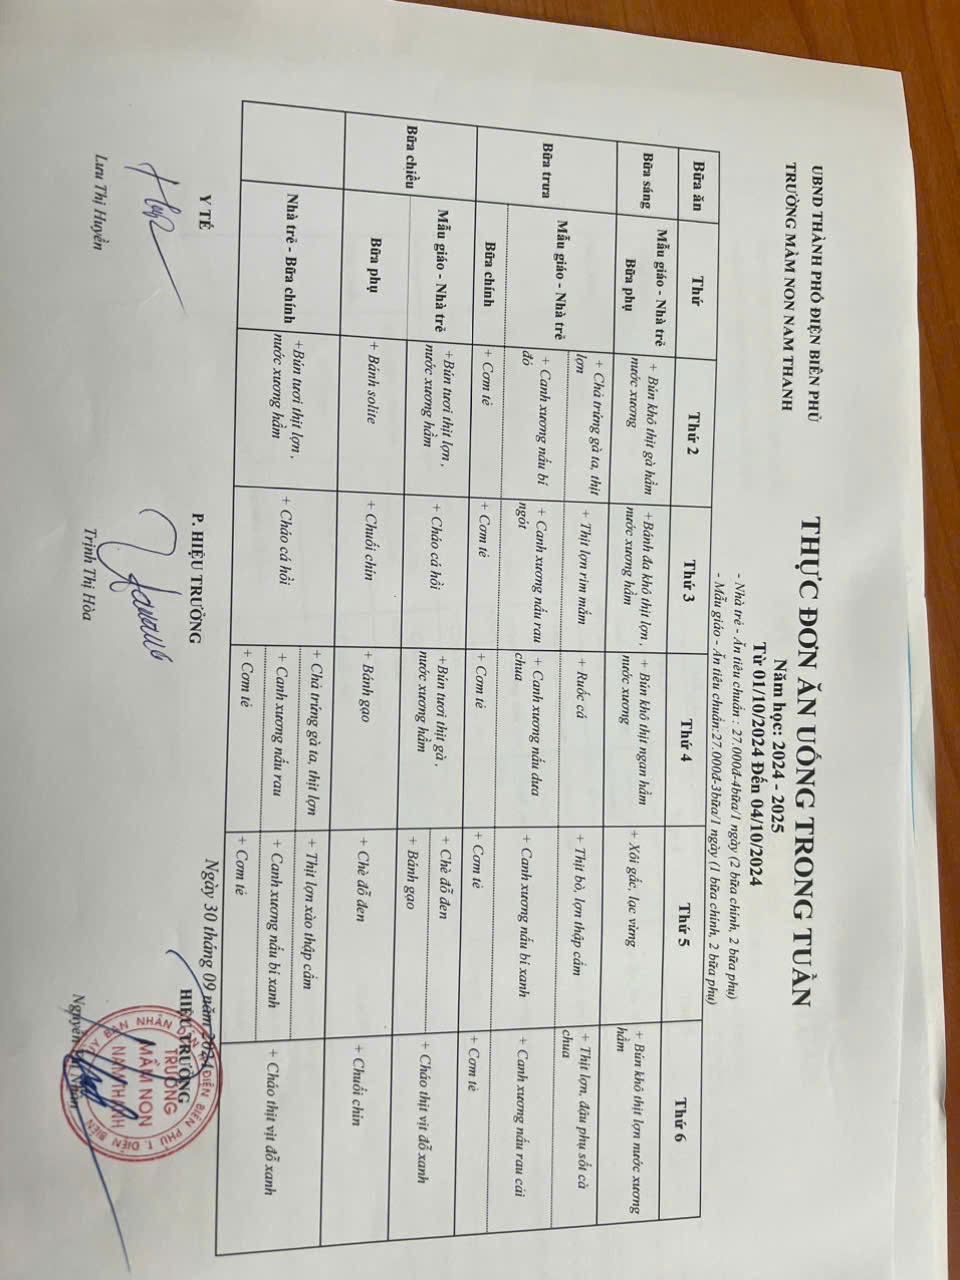 UBND THÀNH PHỐ ĐIỆN BIÊN PHỦ
TRƯỜNG MẦM NON NAM THANH
THỰC ĐƠN ĂN UỐNG TRONG TUẦN
Năm học: 2024 - 2025
Từ 01/10/2024 Đến 04/10/2024
- Nhà trẻ - Ăn tiêu chuẩn : 27.000đ-4bữa/1 ngày (2 bữa chính, 2 bữa phụ)
- Mẫu giáo - Ăn tiêu chuẩn:27.000đ-3bữa/1 ngày (1 bữa chính, 2 bữa phụ)
Bữa ăn
Thứ
Thứ 2
Thứ 3
Thứ 4
Thứ 5
Thứ 6
Bữa sáng
Mẫu giáo - Nhà trẻ
Bữa phụ
+ Bún khô thịt gà hầm
nước xương
+ Bánh đa khô thịt lợn ,
nước xương hầm
+ Bún khô thịt ngan hầm
nước xương
+ Xôi gấc, lạc vừng
+ Bún khô thịt lợn nước xương
hầm
Bữa trưa
Mẫu giáo - Nhà trẻ
Bữa chính
+ Chả trứng gà ta, thịt
lợn
+ Thịt lợn rim mắm
+ Ruốc cá
+ Thịt bò, lợn thập cẩm
+ Thịt lợn, đậu phụ sốt cà
chua
+ Canh xương nấu bí
đỏ
+ Canh xương nấu rau
ngót
+ Canh xương nấu dưa
chua
+ Canh xương nấu bí xanh
+ Canh xương nấu rau cải
+ Cơm tẻ
+ Cơm tẻ
+ Cơm tẻ
+ Cơm tẻ
+ Cơm tẻ
Bữa chiều
Mẫu giáo - Nhà trẻ
Bữa phụ
+Bún tươi thịt lợn ,
nước xương hầm
+ Cháo cá hồi
+Bún tươi thịt gà ,
nước xương hầm
+ Chè đỗ đen
+ Bánh gạo
+ Cháo thịt vịt đỗ xanh
+ Bánh solite
+ Chuối chín
+ Bánh gạo
+ Chè đỗ đen
+ Chuối chín
Nhà trẻ - Bữa chính
+Bún tươi thịt lợn ,
nước xương hầm
+ Cháo cá hồi
+ Chả trứng gà ta, thịt lợn
+ Canh xương nấu rau
+ Cơm tẻ
+ Thịt lợn xào thập cẩm
+ Canh xương nấu bí xanh
+ Cơm tẻ
+ Cháo thịt vịt đỗ xanh
Ngày 30 tháng 09 năm 2024
Y TẾ
P. HIỆU TRƯỞNG
HIỆU TRƯỞNG
TRƯỜNG
MẦM NON
NAM THANH
Lưu Thị Huyền
Trịnh Thị Hòa
Nguyễn